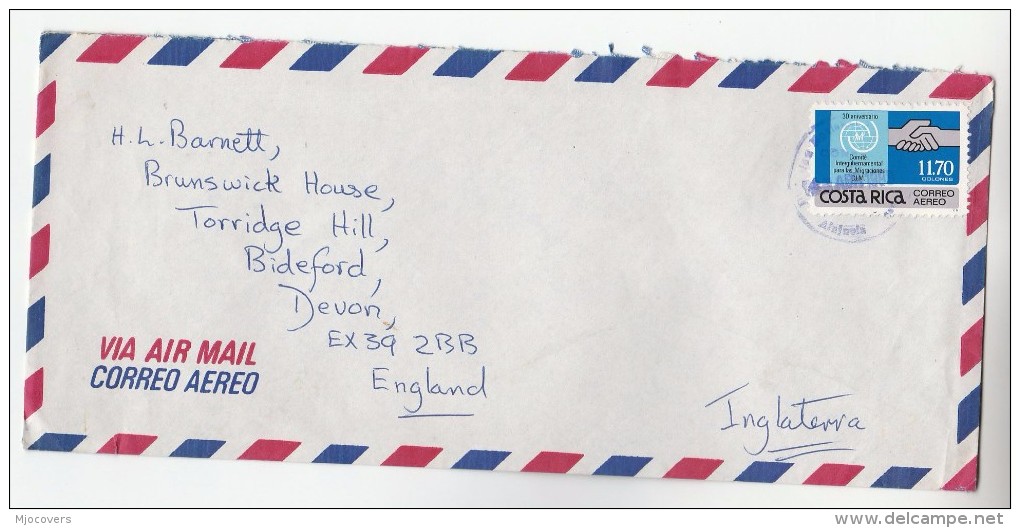 H.L. Barnett,
Brunswick House,
Torridge Hill,
Bideford,
Devon,
EX39 2BB
England
Inglaterra
VIA AIR MAIL
CORREO AEREO
30 aniversario
Comité
Intergubernamental
para las Migraciones
C.I.M.
11.70
COLONES
COSTA RICA
CORREO
AEREO
Alajuela
Mjocovers
www.delcampe.net